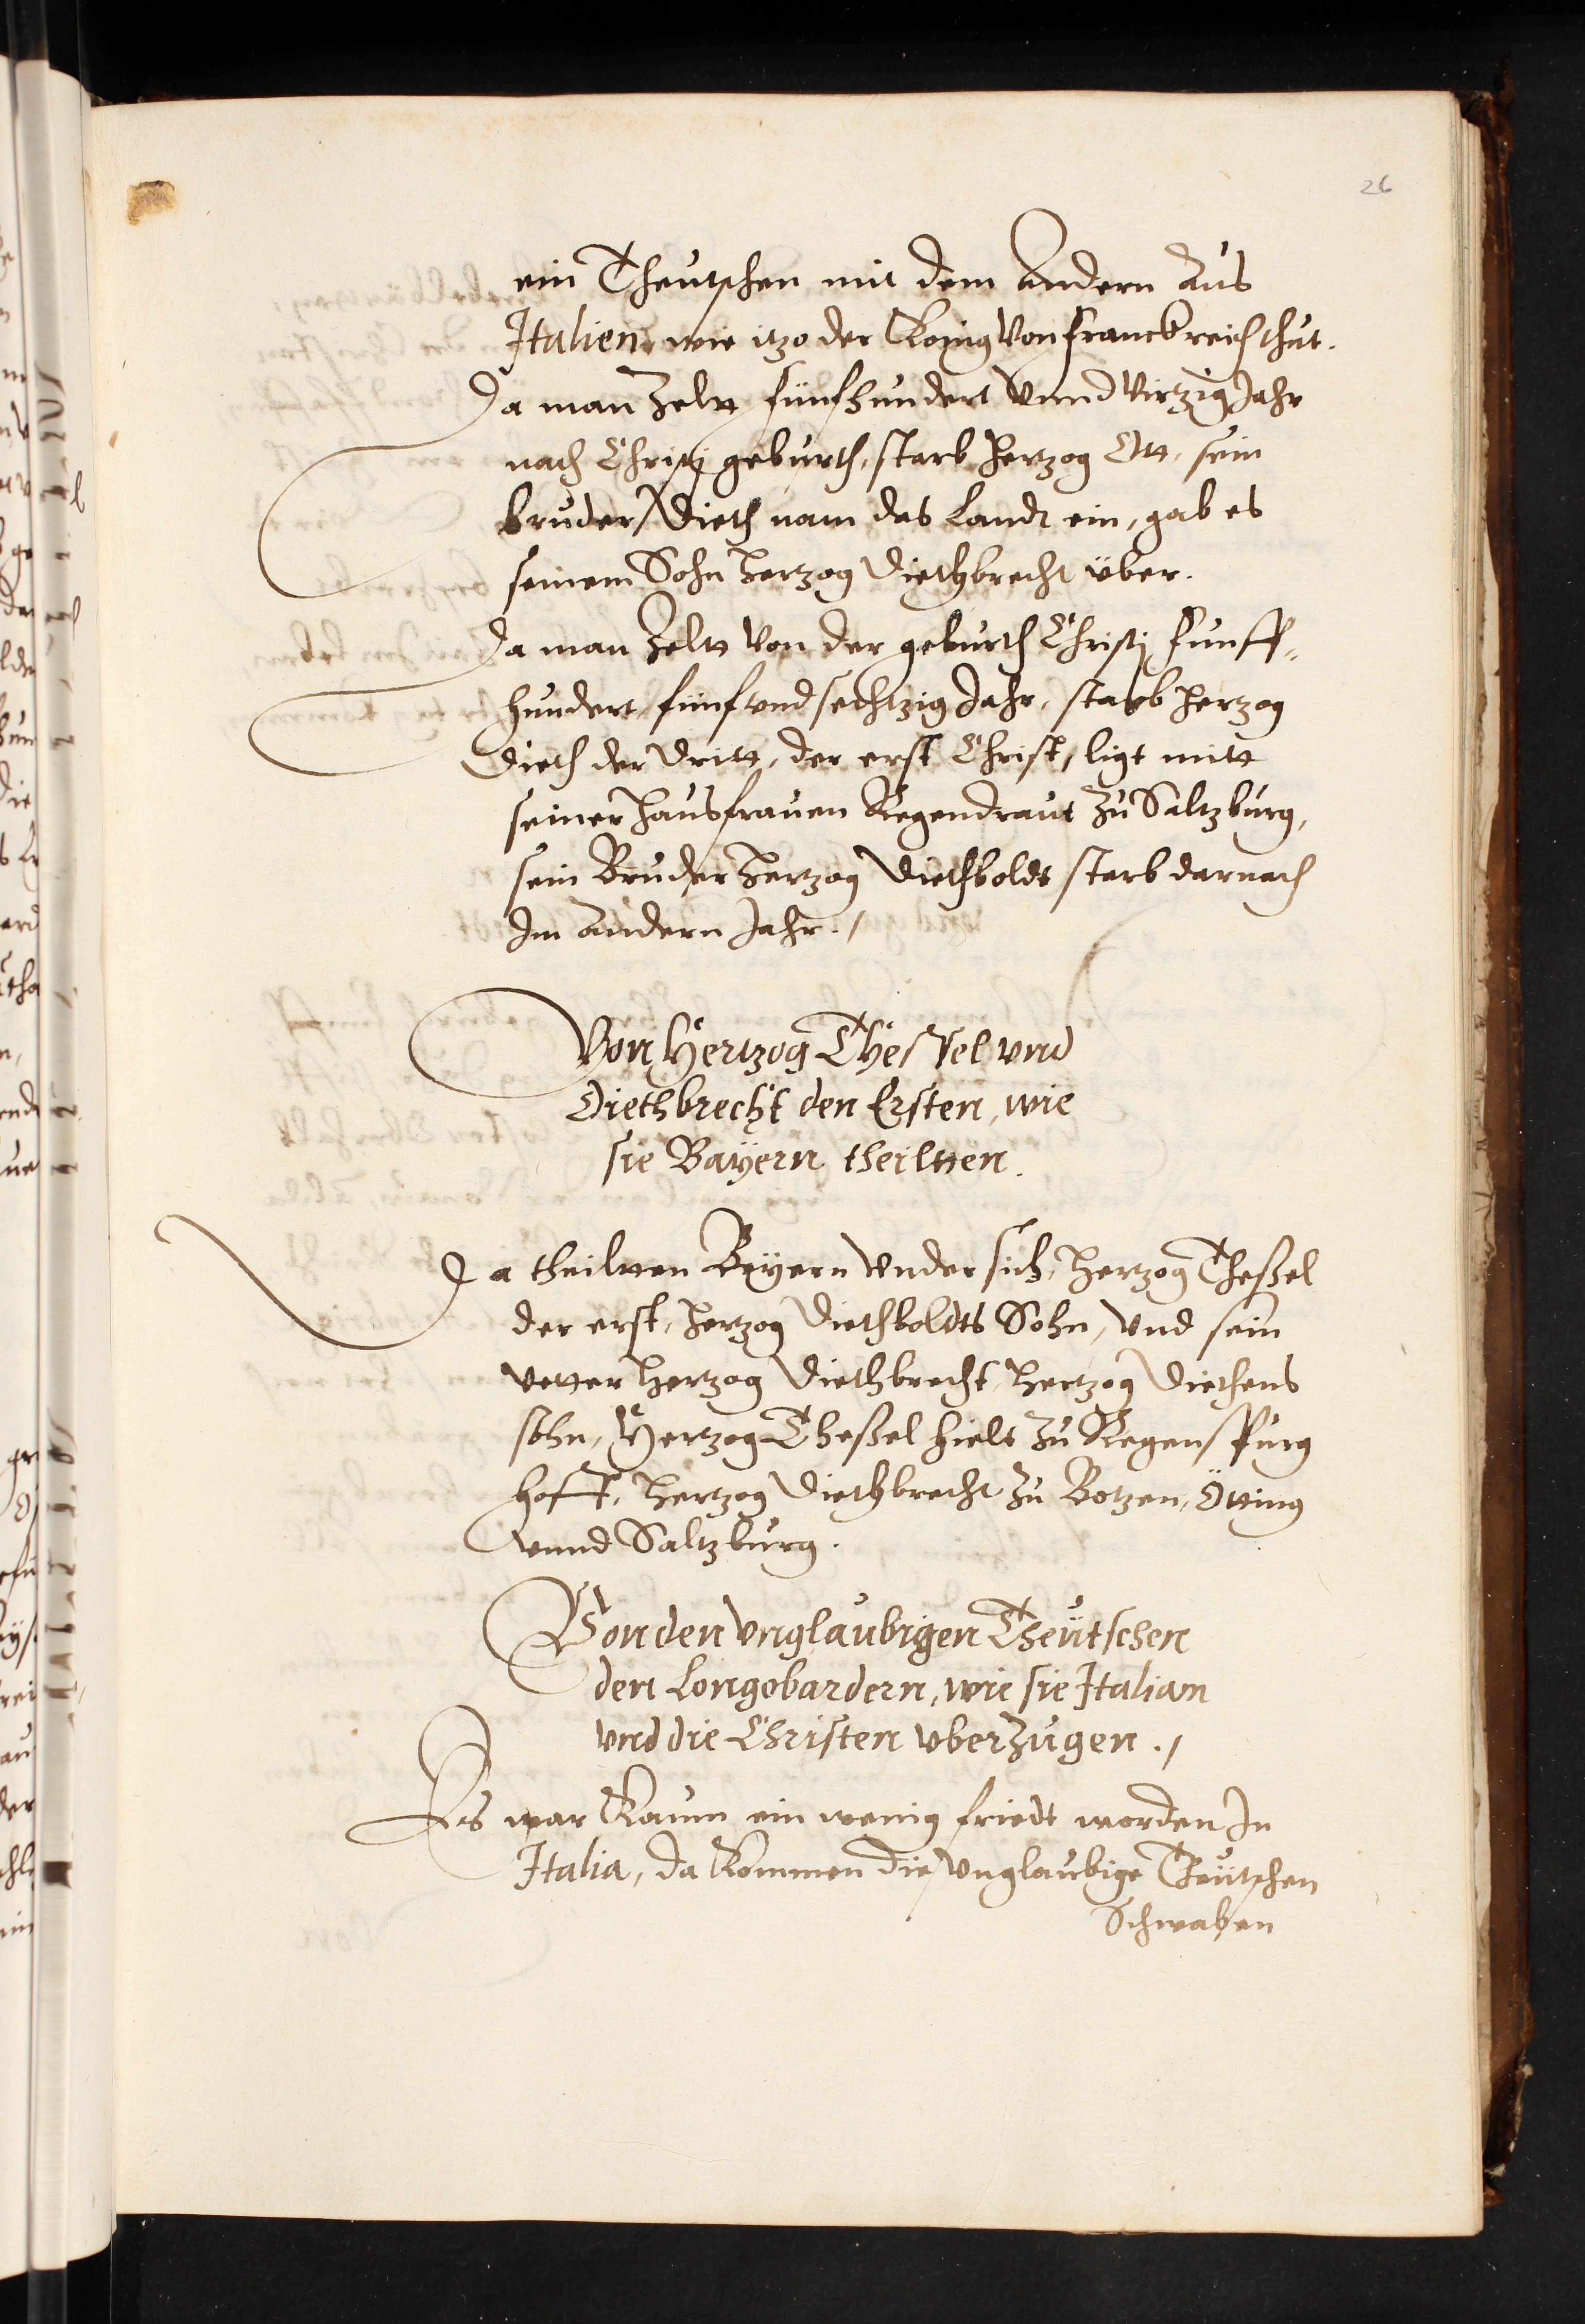 26
ein Theutschen mit dem Andern Aus
Italien, wie itzo der König Von franckreich thut.
Da man Zeltt fünfhundert Vnnd Virtzig Jahr
nach Christj geburth, starb Hertzog Ott, sein
bruder Dieth nam das Landt ein, gab es
seinem Sohn Hertzog Diethbrecht über.
Da man Zeltt Von der geburth Christj Funff„
hundert, fünf vnd sechtzig Jahr, starb Hertzog
Dieth der Dritt, der erst Christ, ligt mitt
seiner Hausfrauen Regendraut Zu Saltzburg,
sein Bruder Hertzog Diethboldt starb darnach
Im Andern Jahr./
Von Hertzog Thessel vnd
Diethbrecht den Ersten, wie
sie Bayern theiltten.
Da theiltten Beyern Vnder sich, Hertzog Theßel
der erst, Hertzog Diethboldts Sohn, Vnd sein
Vetter Hertzog Diethbrecht, Hertzog Diethens
sohn, Hertzog Theßel hielt Zu Regenspurg
hoff, Hertzog Diethbrecht Zu Botzen, Ötting
vnnd Saltzburg.
Von den Vnglaubigen Theutschen
den Longobardern, wie sie Italiam
vnd die Christen vberZugen./
Es war Kaum ein wenig friedt worden In
Italia, da Kommen die Vnglaubige Theutschen
Schwaben